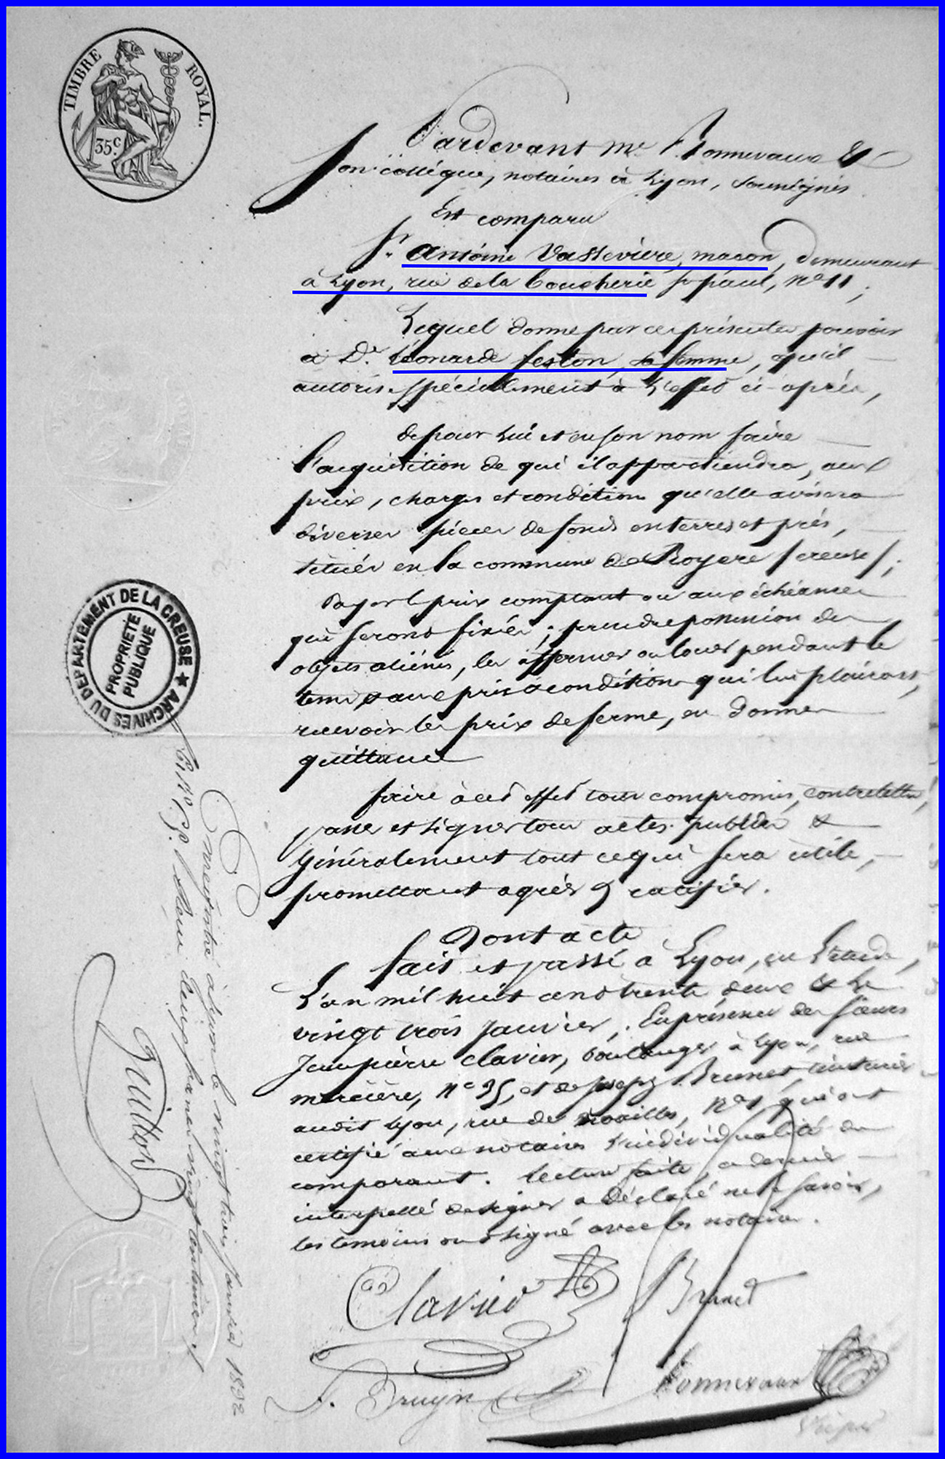 TIMBRE ROYAL.
35c
Pardevant Me. Bonnevaux &
son collègue, notaires à Lyon, soussignés
Est comparu
Sr. Antoine Vassevière, maçon, demeurant
à Lyon, rue de la Boucherie St paul, no 11,
Lequel donne par ces présentes pouvoir
à De. Léonarde feston, sa femme, qu'il
autorise spécialement à l'effet ci-après,
de pour lui et en son nom faire
l'acquisition de qui il appartiendra, aux
prix, charges et conditions qu'elle avisera
diverses pièces de fonds en terres et prés,
situés en la commune de Royere (creuse);
Payer le prix comptant ou aux échéances
qui seront fixées; prendre possession des
objets aliénés, les affermer ou louer pendant le
tems aux prix & conditions qui lui plairont,
recevoir les prix de ferme, en donner
quittance
faire à cet effet tous compromis, contrelettres,
passer et signer tous actes publics &
Généralement tout ce qui sera utile,
promettant agréer & ratifier.
Dont acte
fait et passé à Lyon, en l'étude,
L'an mil huit cent trente deux & le
vingt trois Janvier, En présence des sieurs
Jean pierre clavier, boulanger à Lyon, rue
mercière, no 95, et de Brunet,
audit Lyon, rue de no qui ont
certifié aux notaires l'individualité du
comparant. Lecture faite, ce dernier
interpellé de signer a déclaré ne le savoir,
les témoins ont signé avec les notaires.
Clavier Brunet
Bonnevaux
ARCHIVES DU DEPARTEMENT DE LA CREUSE
PROPRIETE
PUBLIQUE
Enregistré à Lyon le vingt trois Janvier 1832